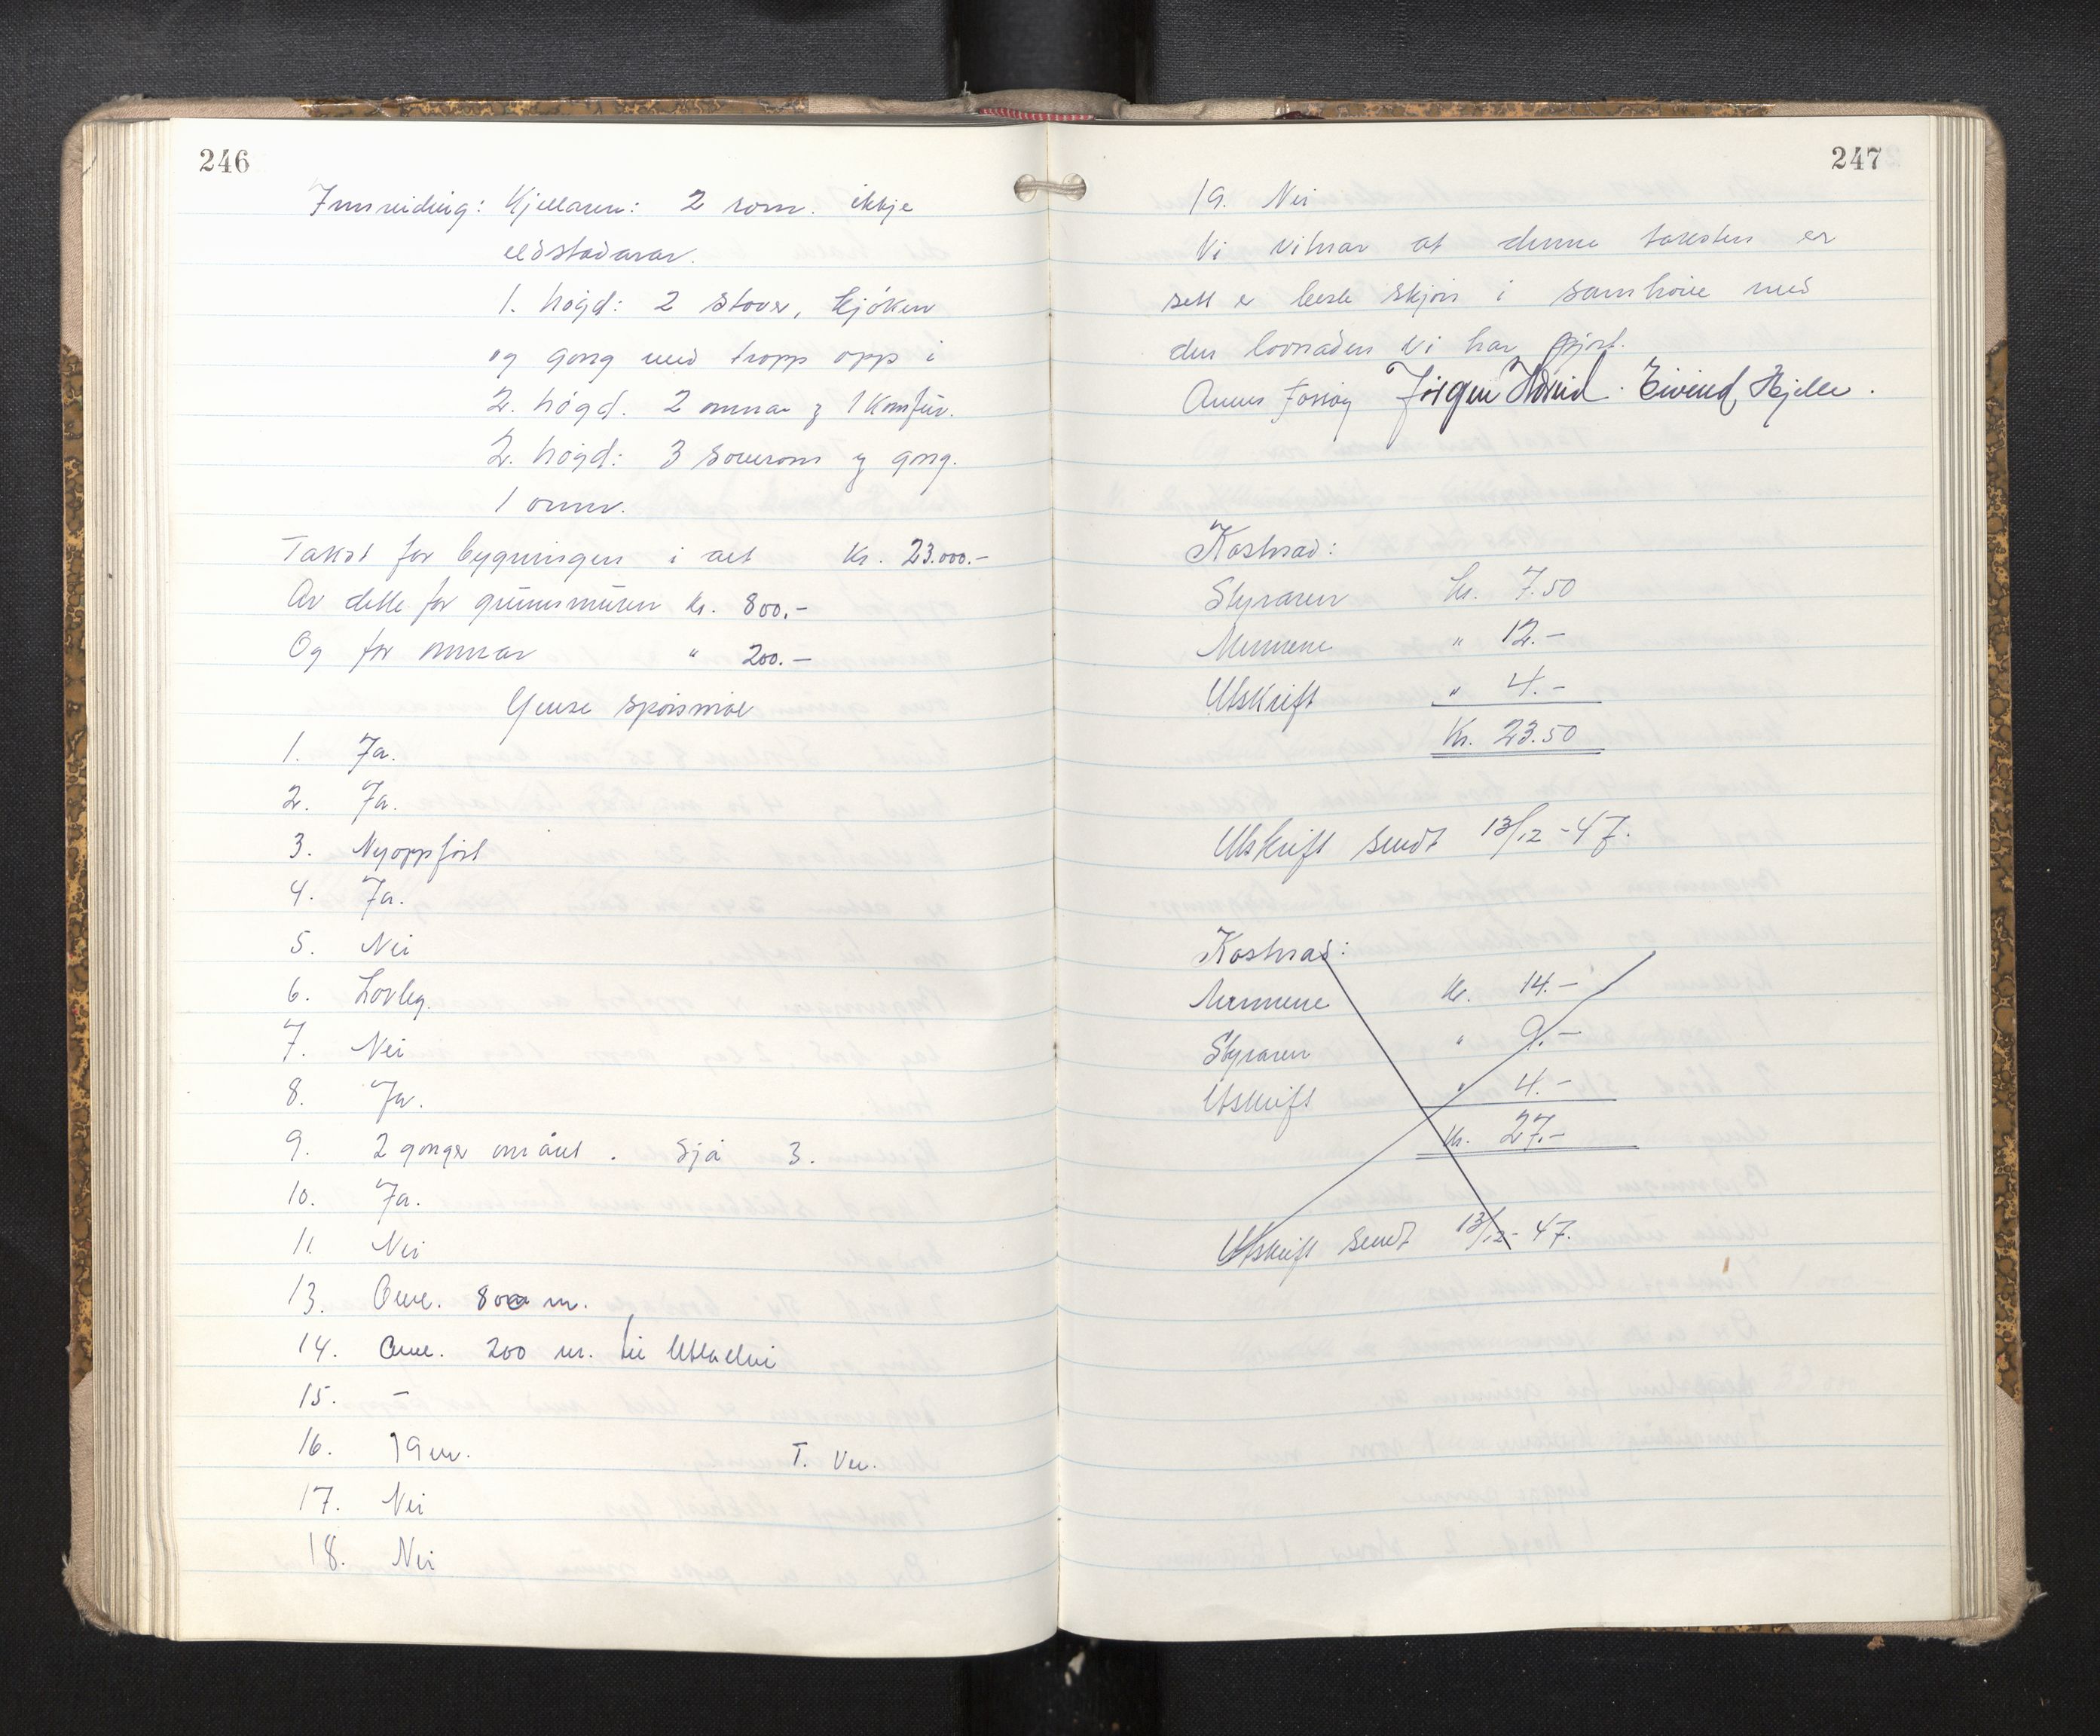 246
Innreiding: Kjellaren: 2 rom. ikkje
eldstadarar.
1. høgd: 2 stover, kjøken
og gong med tropp opp i
2. høgd. 2 omnar og 1 komfür.
2. høgd: 3 soverom og gong.
1 omn.
Takst for bygningen i alt Kr. 23.000.-
Av dette for grunnmuren Kr. 800.-
Og for omnar " 200.-
Ymse spørsmål
1. Ja.
2. Ja.
3. Nyoppført
4. Ja.
5. Nei
6. Lovleg.
7. Nei
8. Ja.
9. 2 gonger om året. Sjå 3.
10. Ja.
11. Nei
13. Oml. 800 m.
14. Oml. 200 m. til Utladelvi
15. –
16. 19 m. T. Ver.
17. Nei
18. Nei
247
19. Nei
Vi vitnar at denne taksten er
sett e beste skjøn i samhøve med
den lovnaden vi har gjort.
Jørgen Eivind Hjelle.
Kostnad:
Styraren kr. 7.50
Mennene " 12.-
Utskrift " 4.-
Kr. 23.50
Utskrift sendt 13/12 -47.
Kostnad:
Mennene kr. 14.-
Styraren " 9.-
Utskrift " 4.-
Kr. 27.-
Utskrift sendt 13/12- 47.